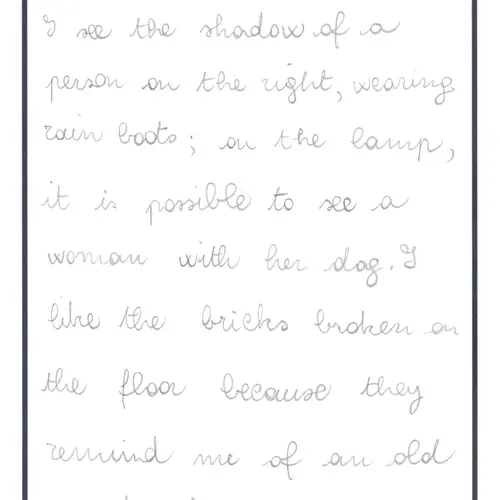 I see the shadow of a
person on the right, wearing
rain boots; on the lamp,
it is possible to see a
woman with her dog. I
like the bricks broken on
the floor because they
remind me of an old